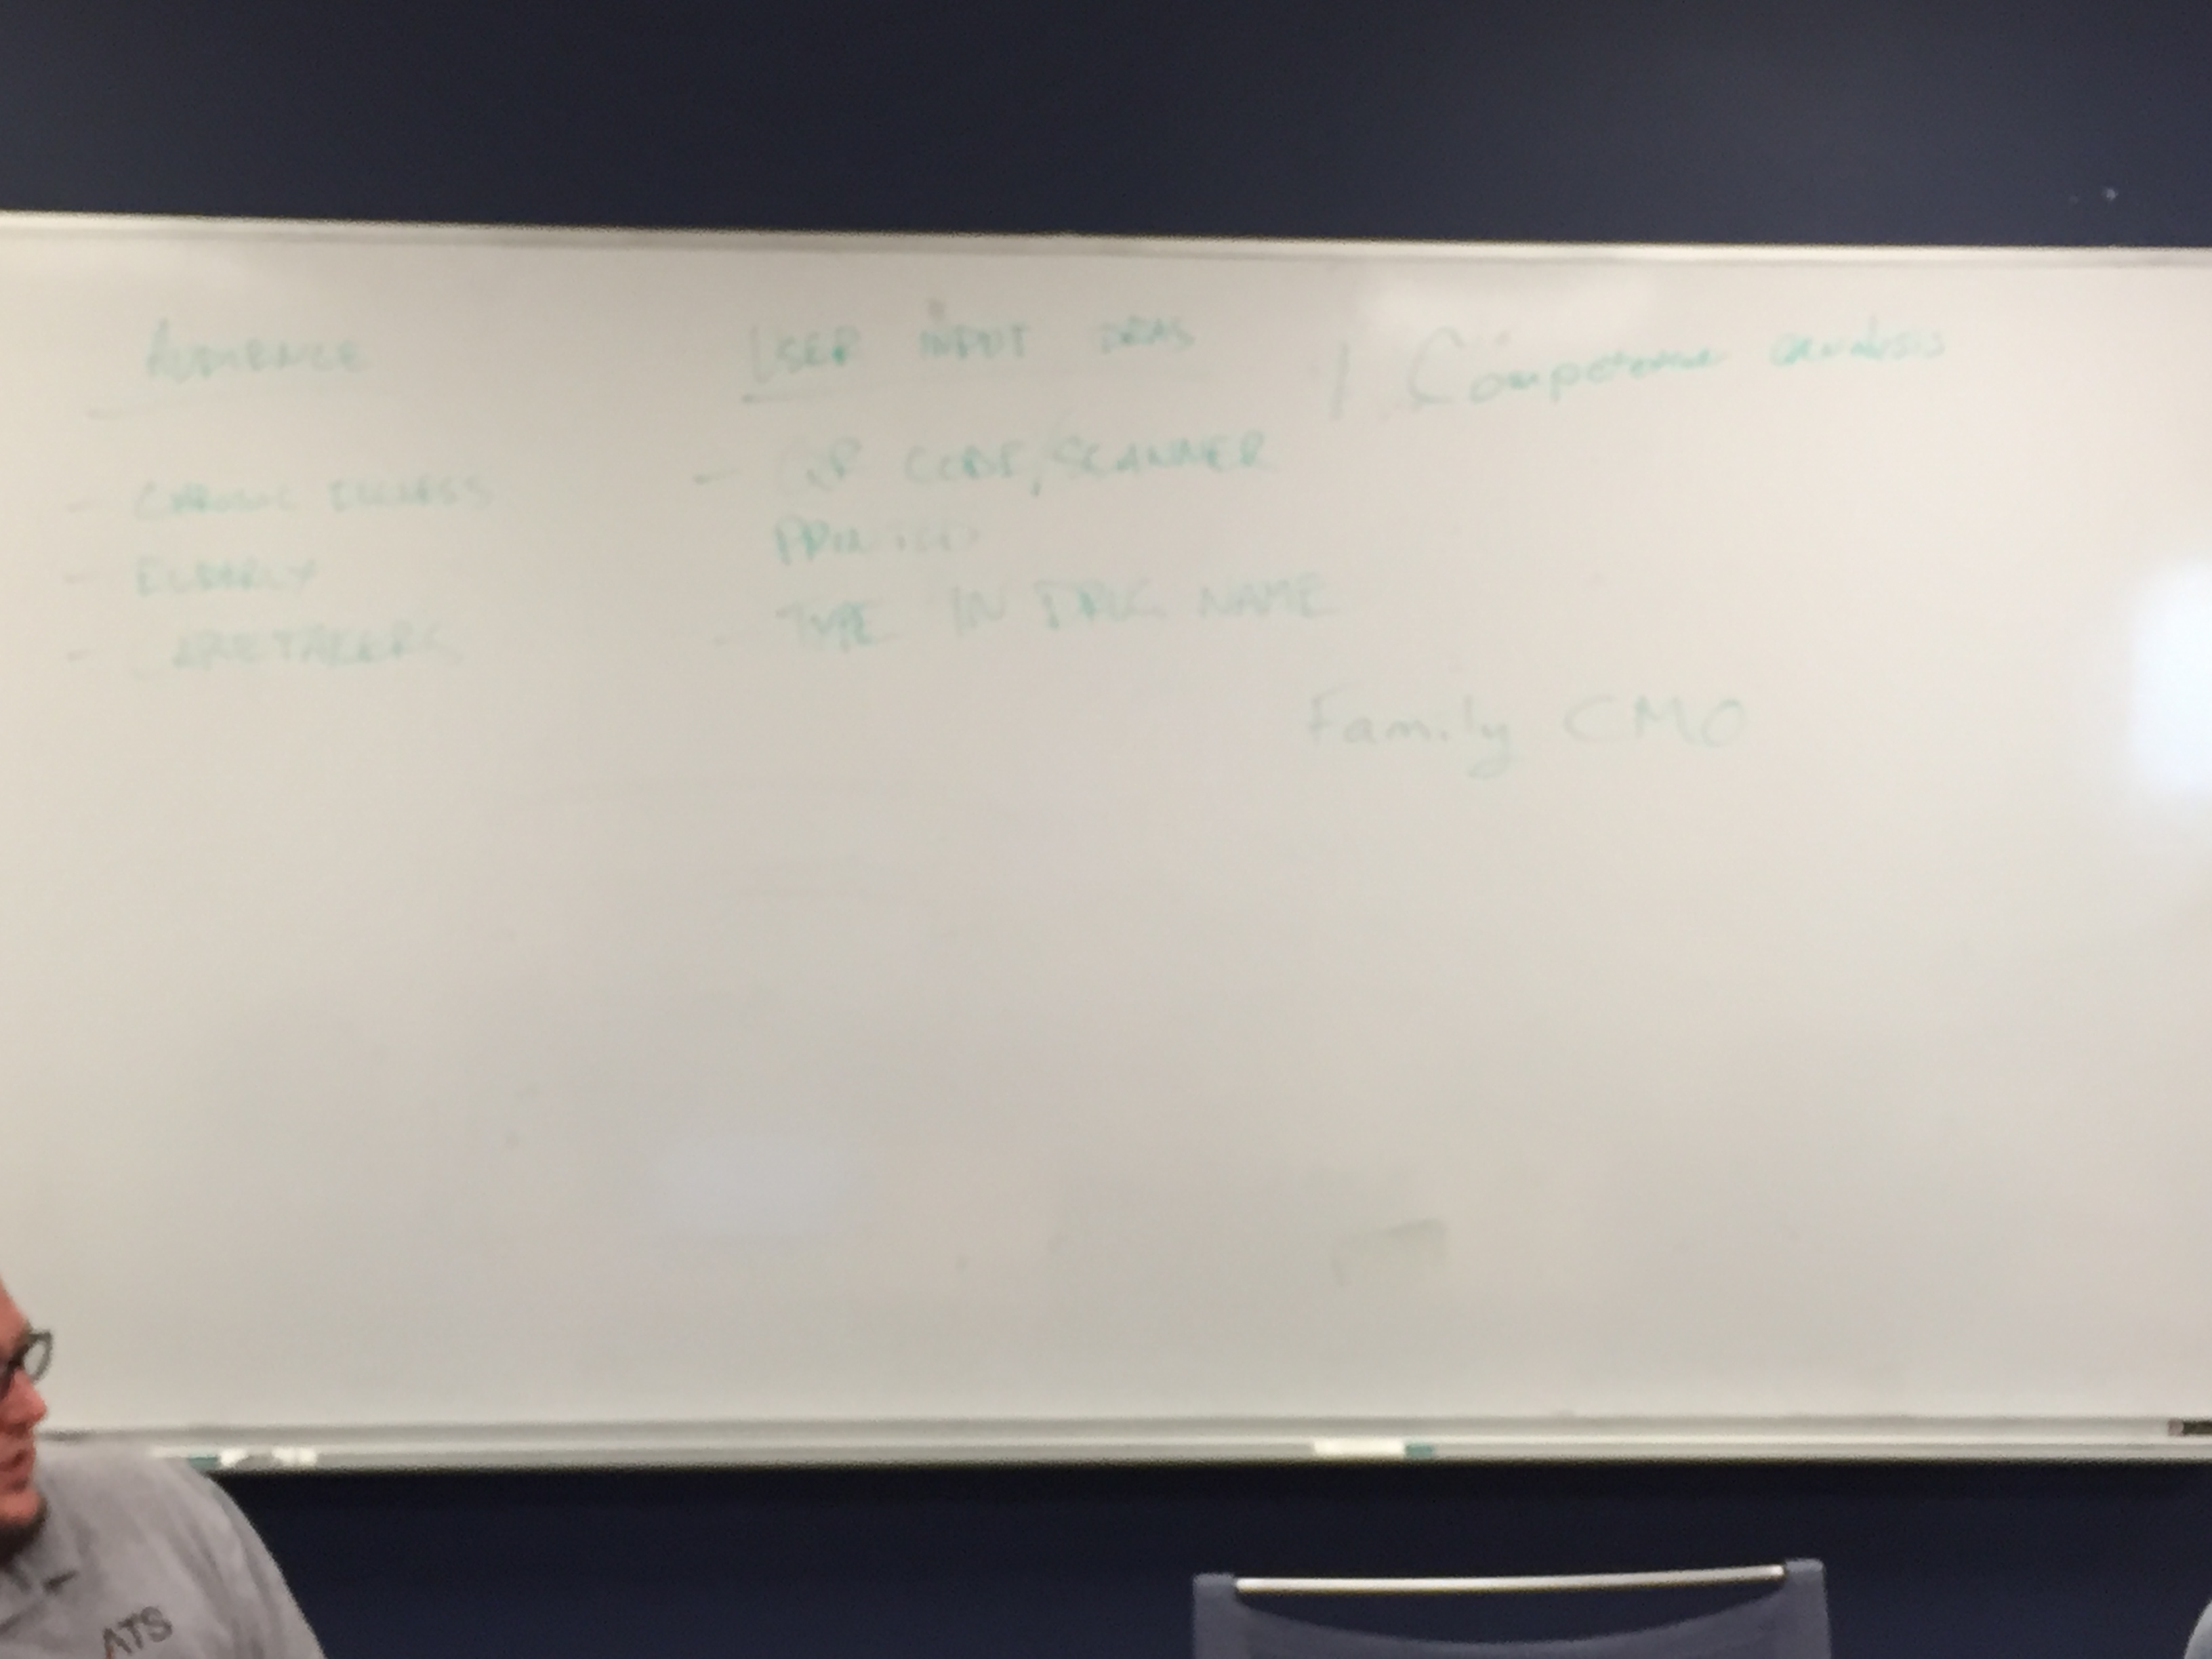 AUDIENCE
- CHRONIC ILLNESS
- ELDERLY
- CARETAKERS
USER INPUT IDEAS
- QR CODE/SCANNER
PRINTED
- TYPE IN DRUG NAME
Competence analysis
Family CMO
ATS